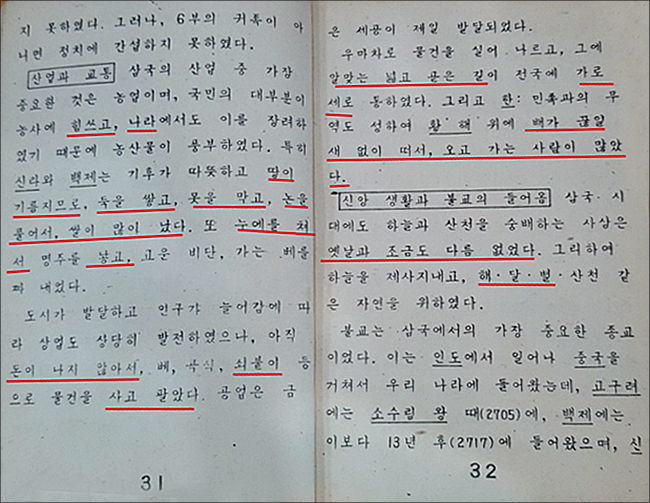 지 못하였다. 그러나, 6부의 귀족이 아
니면 정치에 간섭하지 못하였다.
산업과 교통 삼국의 산업 중 가장
중요한 것은 농업이며, 국민의 대부분이
농사에 힘쓰고, 나라에서도 이를 장려하
였기 때문에 농산물이 풍부하였다. 특히
신라와 백제는 기후가 따뜻하고 땅이
기름지므로, 둑을 쌓고, 못을 막고, 논을
풀어서, 쌀이 많이 났다. 또 누에를 쳐
서 명주를 낳고, 고운 비단, 가는 베를
짜 내었다.
도시가 발달하고 인구가 늘어감에 따
라 상업도 상당히 발전하였으나, 아직
돈이 나지 않아서, 베, 곡식, 쇠붙이 등
으로 물건을 사고 팔았다. 공업은 금
31
은 세공이 제일 발달되었다.
우마차로 물건을 실어 나르고, 그에
알맞는 넓고 곧은 길이 전국에 가로
세로 통하였다. 그리고 한: 민족과의 무
역도 성하여 황해 위에 배가 끊일
새 없이 떠서, 오고 가는 사람이 많았
다.
신앙 생활과 불교의 들어옴 삼국 시
대에도 하늘과 산천을 숭배하는 사상은
옛날과 조금도 다름 없었다. 그리하여
하늘을 제사지내고, 해·달·별·산천 같
은 자연을 위하였다.
불교는 삼국에서의 가장 중요한 종교
이었다. 이는 인도에서 일어나 중국을
거쳐서 우리 나라에 들어왔는데, 고구려
에는 소수림 왕 때(2705)에, 백제에는
이보다 13년 후(2717)에 들어왔으며, 신
32